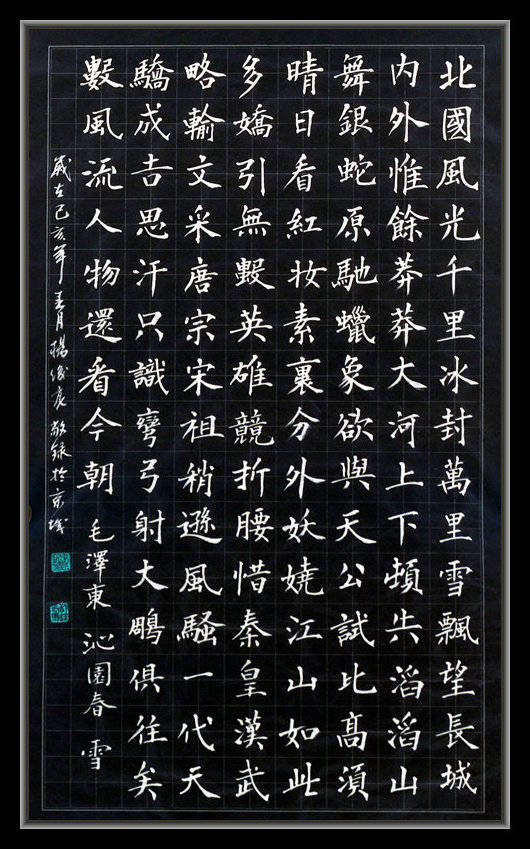 北國風光千里冰封萬里雪飄望長城
内外惟餘莽莽大河上下頓失滔滔山
舞銀蛇原馳蠟象欲與天公試比高須
晴日看紅妝素裹分外妖嬈江山如此
多嬌引無數英雄競折腰惜秦皇漢武
略輸文采唐宗宋祖稍遜風騷一代天
驕成吉思汗只識彎弓射大鵰俱往矣
數風流人物還看今朝 毛澤東 沁園春 雪
歲在己亥年 春月 楊俊彦敬録於京城